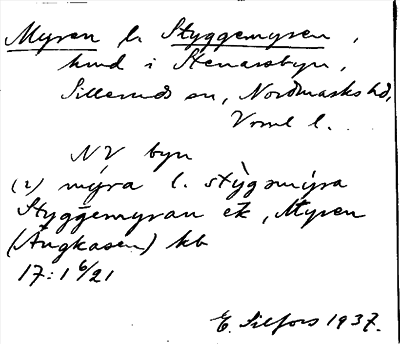 Myren l. Styggemyren,
hmd i Stenarsbyn,
Silleruds sn, Nordmarks hd,
Vrml l.
NV byn
(2) mýra l. stỳgəmýra
Styggemyran ek, Myren
(Ängkasen) kb
17:1 6/21
E. Silfors 1937.